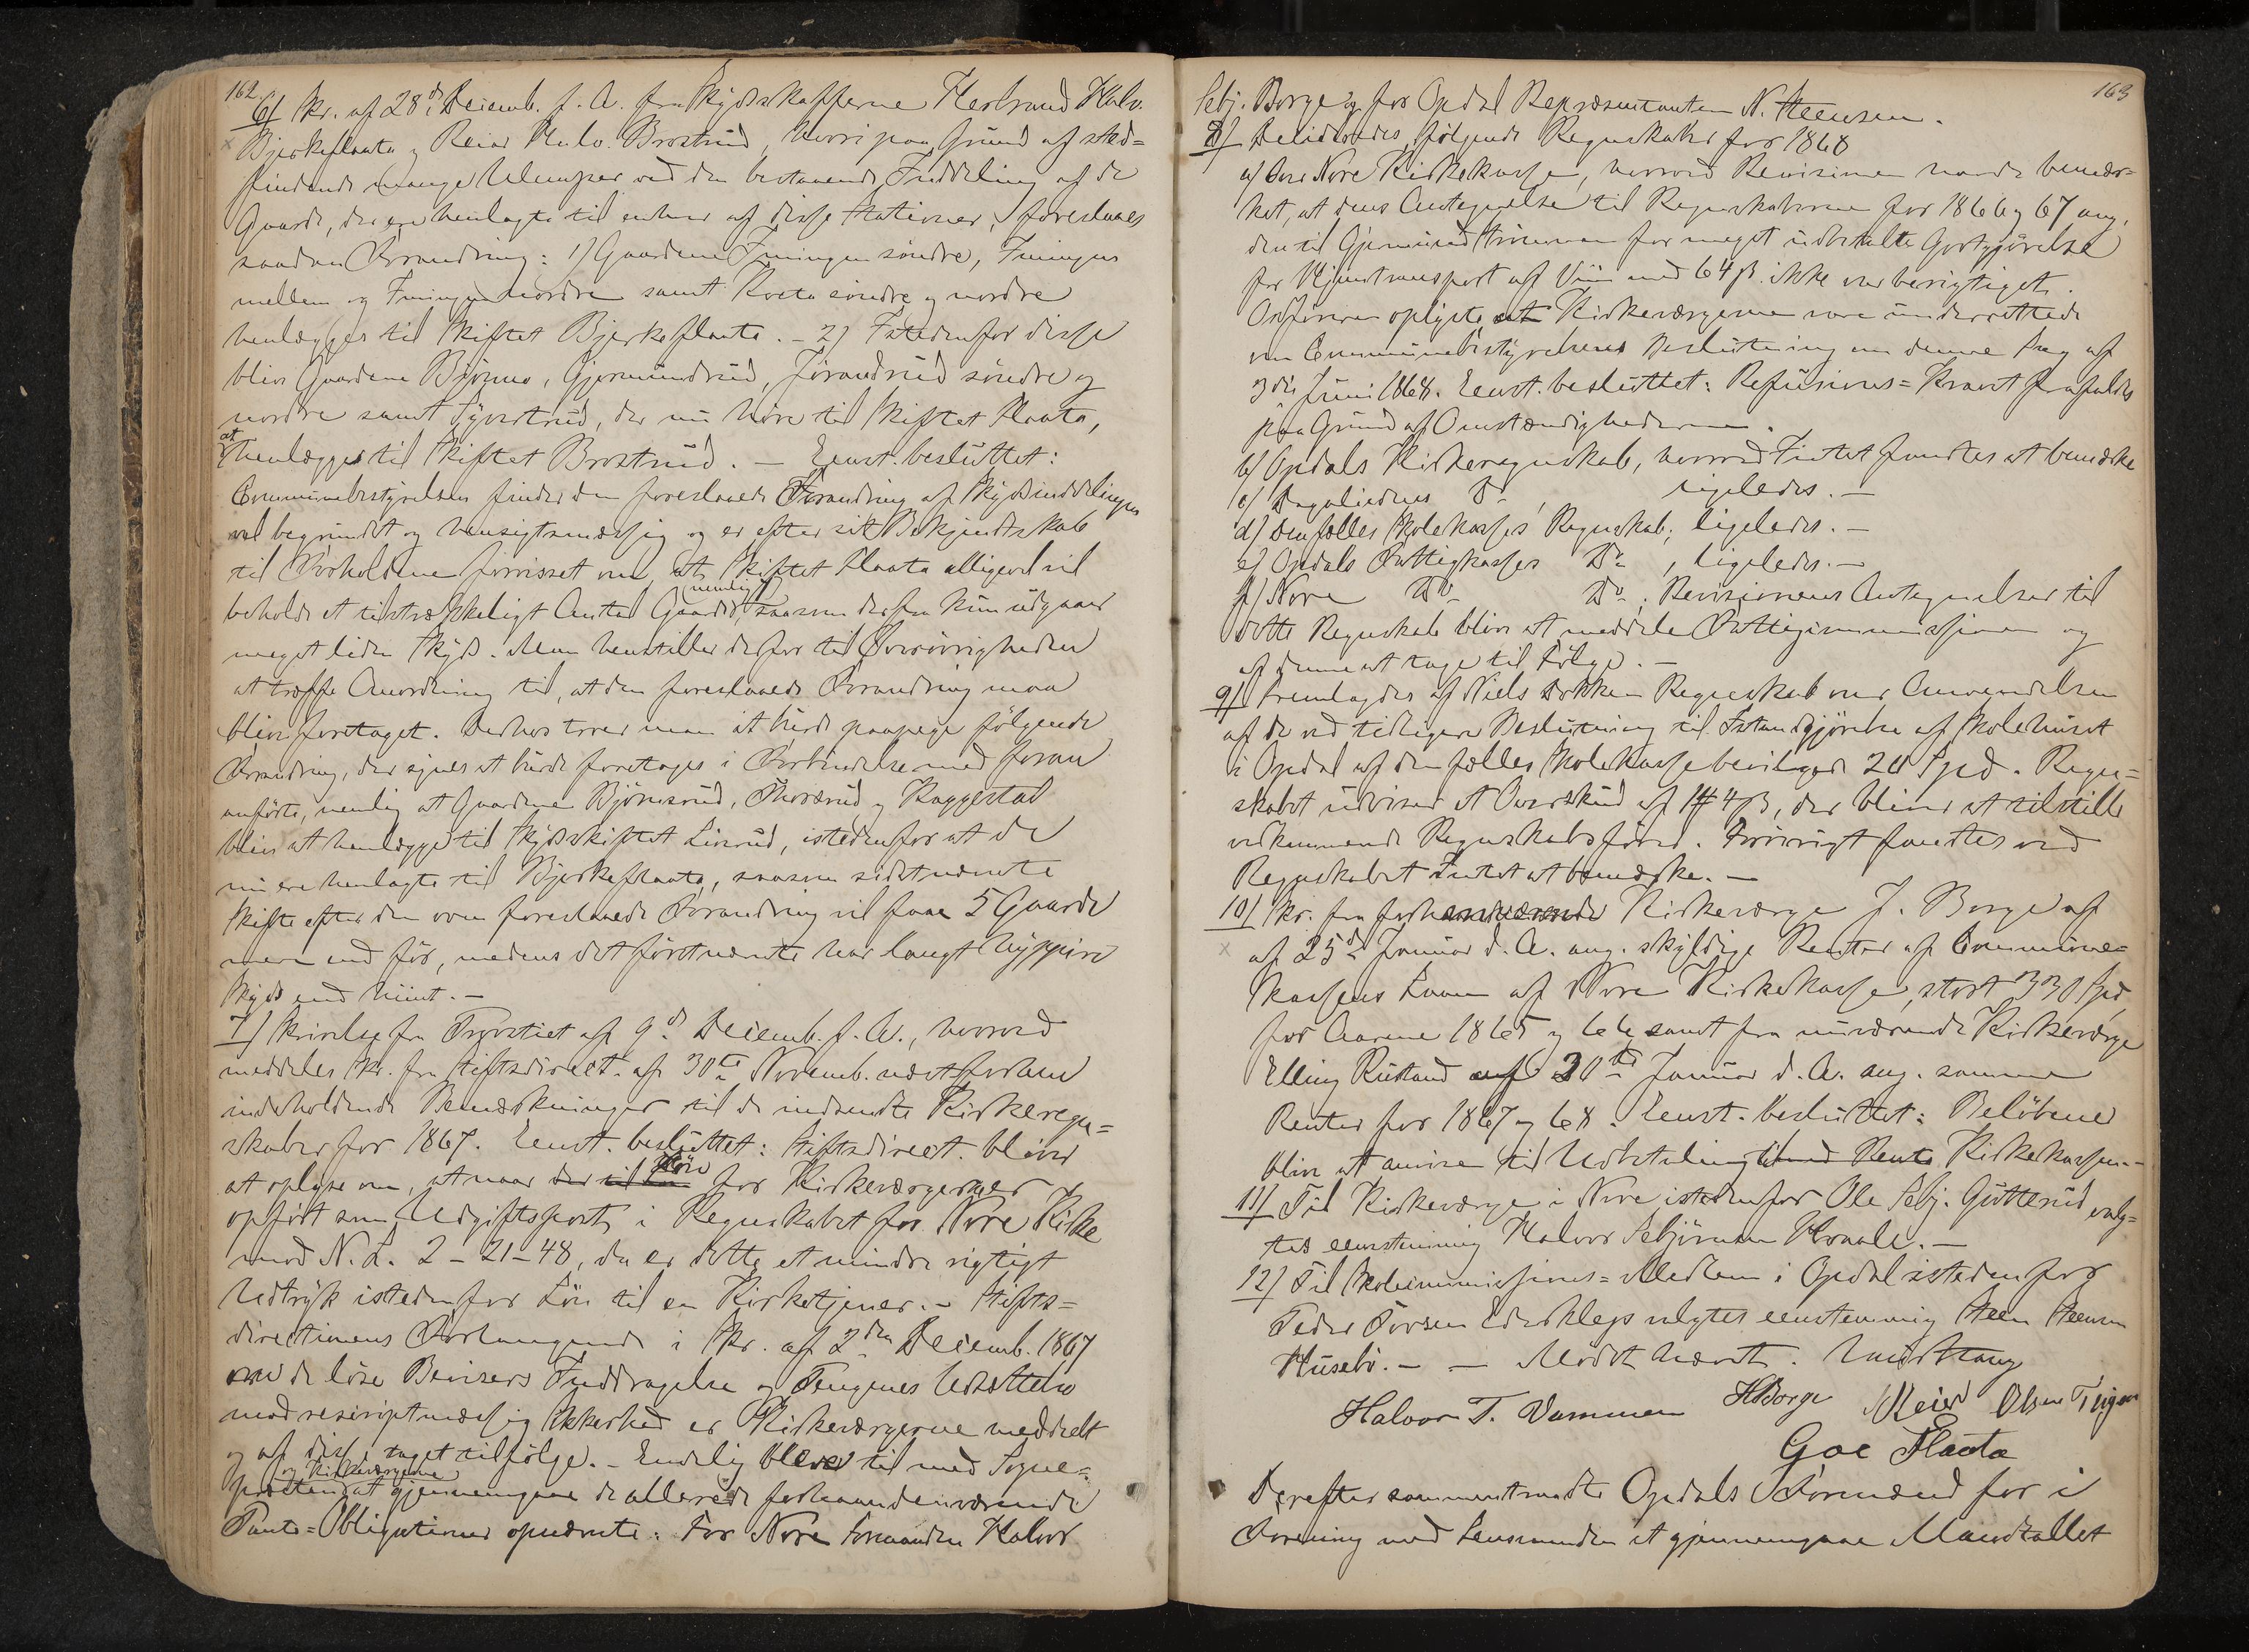 162.
6/ Skr. af 28de Decemb. f. A. fra Skydsskafferne Herbrand Halv.
Bjerkeflaata og Reiar Halv. Brostrud, hvori paa Grund af sted=
findende mange Ulemper ved den bestaaende Inddeling af de
Gaarde, der ere henlagte til enhver af disse Stationer, foreslaaes
saadan Forandring: 1) Gaardene Fuingen søndre, Fuingen
mellem og Fuingen nordre samt Kvota søndre og nordre
henlægges til Skiftet Bjerkeflaata. - 2) Istedenfor disse
bliver Gaardene Bjørmo, Gjermundrud, Jørandrud søndre og
nordre samt Syverstrud, der nu høre til Skiftet Flaata,
at henlægges til Skiftet Brostrud. - Eenst. besluttet:
Communebestyrelsen finder den foreslaaede Forandring af Skydsinddelingen
vel begrundet og hensigtsmæssig og er efter sit Bekjendtskab
til Forholdene forvisset om, at Skiftet Flaata alligevel vil
beholde et tilstrækkeligt Antal Gaarde, (nemlig ) saasom derfra kun udgaar
meget liden Skyds. Man henstiller derfor til Overøvrigheden
at træffe Anordning til, at den foreslaaede Forandring maa
blive foretaget. Derhos troer man at burde paapege følgende
Forandring, der synes at burde foretages i Forbindelse med foran
anførte, nemlig at Gaardene Bjørnsrud, Thorsrud og Kaggestad
bliver at henlægge til Skydsskiftet Linrud, istedenfor at de
nu ere henlagte til Bjerkeflaata, saasom sidstnævnte
Skifte efter den oven foreslaaede Forandring vil faae 5 Gaarde
mere end før, medens det førstnævnte har langt hyppigere
Skyds end hiint. -
7/ Skrivelse fra Provstiet af 9de Decemb. f. A., hvorved
meddeles Skr. fra Stiftsdirect. af 30te Novemb. næstforhen
indeholdende Bemærkninger til de indsendte Kirkeregn=
skaber for 1867. Eenst. besluttet: Stiftsdirect. bliver
at oplyse om, at naar der til Løn for Kirkeværgen er
opført som Udgiftspost i Regnskabet for Nore Kirke
mod N. L. 2-21-48, da er dette et mindre rigtigt
Udtryk istedenfor Løn til en Kirketjener. - Stifts=
directionens Forlangende i Skr. af 2den Decemb. 1867
om de løse Bevisers Inddragelse og Pengenes Udsættelse
mod rescriptmæssig Sikkerhed er Kirkeværgerne meddelt
og af disse taget tilfølge. - Endelig blev til med Sogne=
præsten og Kirkeværgerne at gjennemgaae de allerede forhaandenværende
Pante=Obligationer opnævnte: For Nore Formanden Halvor
163
Sebj. Borge og for Opdal Repræsentanten N. Steensen.
8/ Decideredes følgende Regnskaber for 1868
a) Over Nore Kirkekasse, hvorved Revisionen havde bemær=
ket, at dens Antegnelse til Regnskaberne for 1866 og 67 ang.
den til Gjermund Simonsen for meget udbetalte Godtgjørelse
for Hjemtransport af Viin med 64 ß ikke var berigtiget.
Ordføreren oplyste, at Kirkeværgerne vare underrettede
om Communebestyrelsens Beslutning om denne Sag af
3die Juni 1868. Eenst. besluttet: Refusions=Kravet frafaldes
paa Grund af Omstændighederne.
b) Opdals Kirkeregnskab, hvorved Intet fandtes at bemærke
c) Dagaliedens Do, ligeledes. -
d) Den fælles Skolekasses Regnskab, ligeledes. -
e) Opdals Fattigkasses Do, ligeledes. -
f) Nore Do Do, Revisionens Antegnelser til
dette Regnskab blive at meddele Fattigcommissionen og
af denne at tage til Følge. -
9/ Fremlagdes af Niels Dokken Regnskab over Anvendelsen
af de ved tidligere Beslutning til Istandgjørelse af Skolehuset
i Opdal af den fælles Skolekasse bevilgede 20 Spd. Regn=
skabet udviser et Overskud af 1 # 4 ß, der bliver at tilstille
vedkommende Regnskabsfører. Forøvrigt fandtes ved
Regnskabet Intet at bemærke. -
10/ Skr. fra forhenværende Kirkeværge J. Borge af
af 25de Januar d. A. ang. skyldige Renter af Commune=
kassens Laan af Nore Kirkekasse, stort 330 Spd,
for Aarene 1865 og 66, samt fra nuværende Kirkeværge
Elling Rustand af 30te Januar d. A. ang. samme
Renter for 1867 og 68. Eenst. besluttet: Beløbene
bliver at anvise til Udbetaling til med Rente Kirkekassen. -
11/ Til Kirkeværge i Nore istedenfor Ole Sebj. Gutterud valg=
tes eenstemmig Halvor Sebjørnsen Kraale. -
12/ Til Skolecommissions=Medlem i Opdal istedenfor
Peder Torsen Ederklep valgtes eenstemmig Steen Steensen
Husebø. - - Mødet hævet.
Halvor T. Dammen HSBorge Reier Olsen
Goe Flaata
Derefter sammentraadte Opdals Formænd for i
Forening med Lensmanden at gjennemgaae Mandtallet